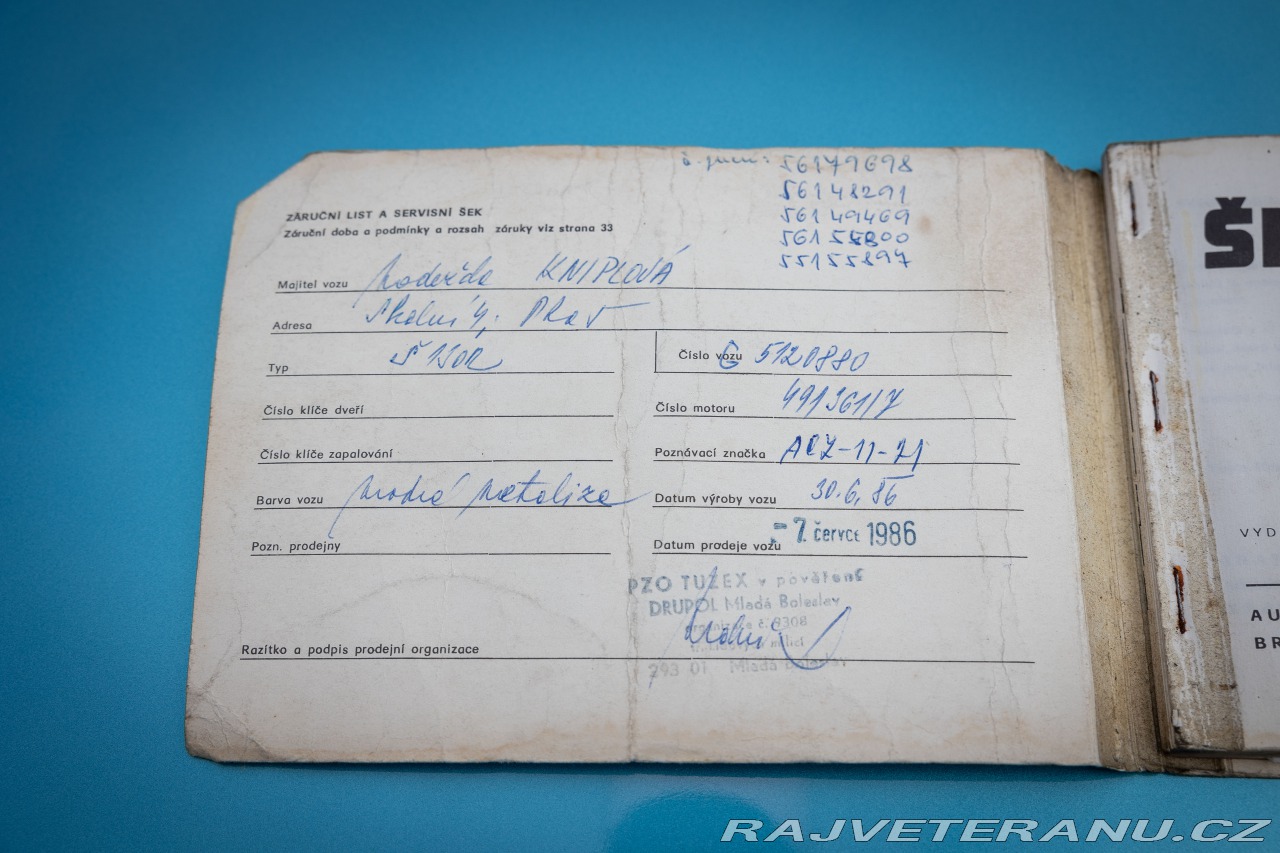 56179698
56148291
56149469
55155897
ZÁRUČNÍ LIST A SERVISNÍ ŠEK
Záruční doba a podmínky a rozsah záruky viz strana 33
Majitel vozu KNIPLOVÁ
Adresa
Typ Š 130R
Číslo vozu G 5120880
Číslo klíče dveří
Číslo motoru
Číslo klíče zapalování
Poznávací značka ACZ-11-71
Barva vozu modrá metalíza
Datum výroby vozu 30.6.86
Pozn. prodejny
Datum prodeje vozu - 7. červce 1986
PZO TUZEX v pověření
DRUPOL Mladá Boleslav
Razítko a podpis prodejní organizace
293 01 Mladá Boleslav
Š
VYD
AU
BR
RAJVETERANU.CZ